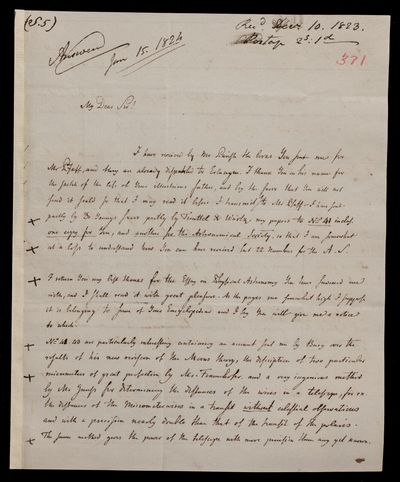 (N.5)
Rec'd Decr 10. 1823.
Postage 2s. 1d
Answered
Jan 15. 1824
371
My Dear Sir!
I have received by Mr the lines You me for
Mr Pfaff, and they are already to Erlangen. I thank You in his name for
the sketch of the life of Your illustrious father, and by the favor that You will not
find it that I may read it before I transmit to Mr Pfaff. I have
partly by Dr Young partly by Treuttel & Würtz, my papers to No 41 inclus.
one copy for You, and another for the Astronomical Society, so that I am somewhat
at a loss to understand how You can have received but 22 Numbers for the A. S.
I return You my best thanks for the Essay on Physical Astronomy You have favoured me
with, and I shall read it with great pleasure. As the pages run somewhat high I suppose
it is belonging to some of Your Encyclopedias and I beg You will give me a notice
to which.
No 43 are particularly interesting containing an account sent me by Burg over the
results of his new revision of the Moons theory, the description of two particular
micrometers of great perfection by Mr. Fraunhofer, and a very ingenious method
by Mr Gauss for determining the distances of the wires in a telescope, for ex
the distances of the Micrometerwires in a transit without celestial observations
and with a precision nearly double than that of the transit of the polaris.
The same method gives the power of the telescope with more precision than any yet known.